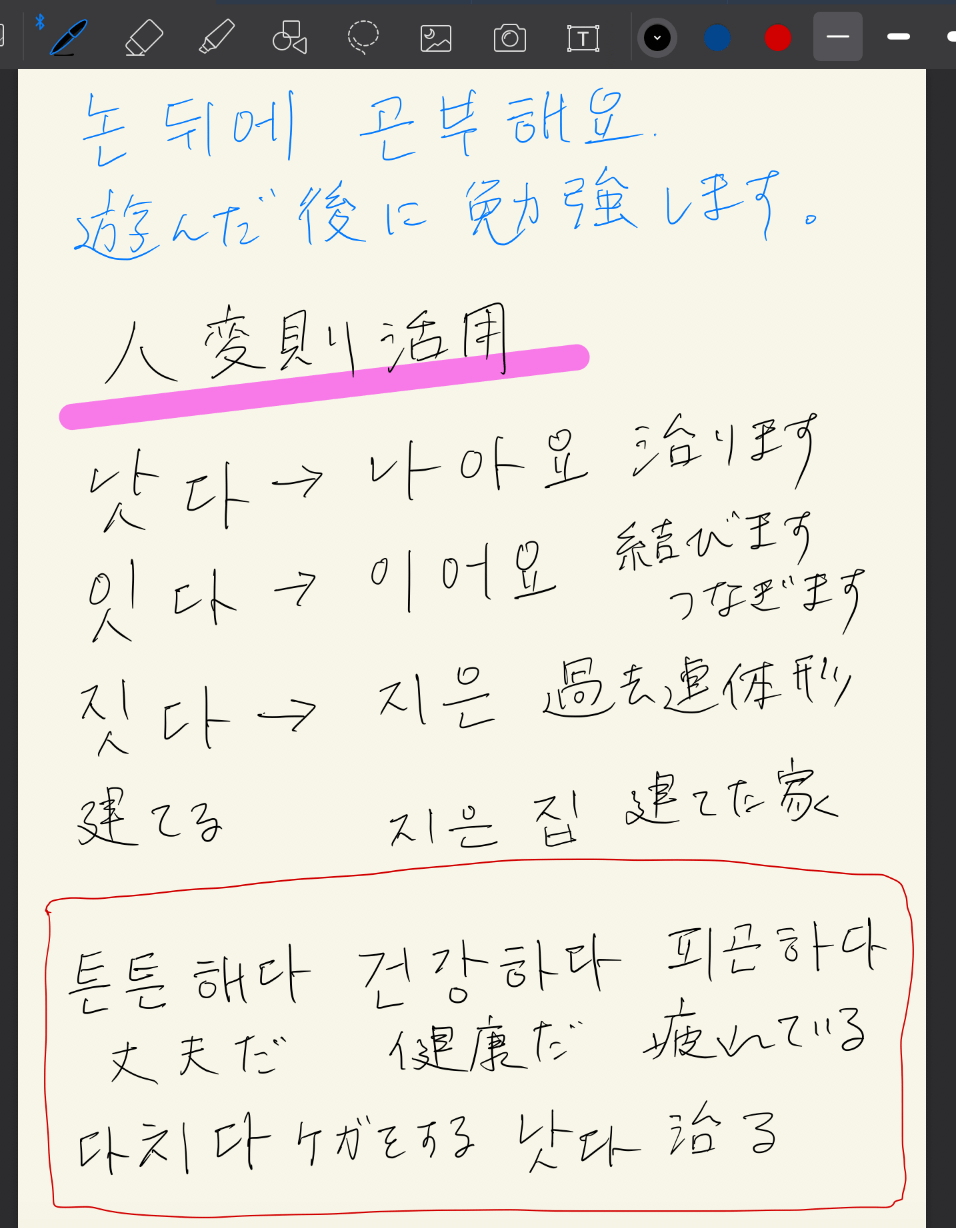 논 뒤에 곤부해요.
遊んだ後に勉強します。
ㅅ変則活用
낫다→나아요 治ります
잇다→이어요 結びます
つなぎます
짓다→지은 過去連体形
建てる 지은 집 建てた家
튼튼해다 건강하다 피곤하다
丈夫だ 健康だ 疲れている
다치다 ケガをする 낫다 治る